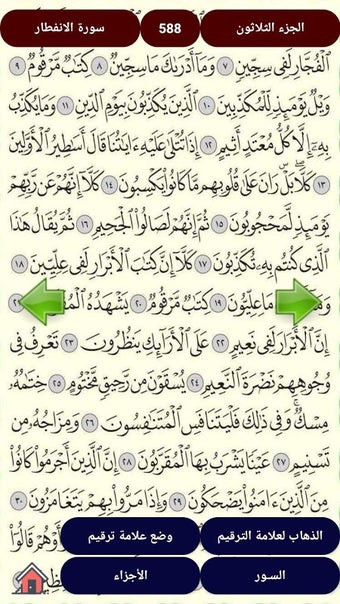 الجزء الثلاثون
588
سورة الانفطار
ٱلْفُجَّارِ لَفِى سِجِّينٍ ٧ وَمَآ أَدْرَىٰكَ مَا سِجِّينٌ ٨ كِتَٰبٌ مَّرْقُومٌ ٩
وَيْلٌ يَوْمَئِذٍ لِّلْمُكَذِّبِينَ ١٠ ٱلَّذِينَ يُكَذِّبُونَ بِيَوْمِ ٱلدِّينِ ١١ وَمَا يُكَذِّبُ
بِهِۦٓ إِلَّا كُلُّ مُعْتَدٍ أَثِيمٍ ١٢ إِذَا تُتْلَىٰ عَلَيْهِ ءَايَٰتُنَا قَالَ أَسَٰطِيرُ ٱلْأَوَّلِينَ
١٣ كَلَّا ۖ بَلْ ۜ رَانَ عَلَىٰ قُلُوبِهِم مَّا كَانُوا۟ يَكْسِبُونَ ١٤ كَلَّآ إِنَّهُمْ عَن رَّبِّهِمْ
يَوْمَئِذٍ لَّمَحْجُوبُونَ ١٥ ثُمَّ إِنَّهُمْ لَصَالُوا۟ ٱلْجَحِيمِ ١٦ ثُمَّ يُقَالُ هَٰذَا
ٱلَّذِى كُنتُم بِهِۦ تُكَذِّبُونَ ١٧ كَلَّآ إِنَّ كِتَٰبَ ٱلْأَبْرَارِ لَفِى عِلِّيِّينَ ١٨
مَا عِلِّيُّونَ ١٩ كِتَٰبٌ مَّرْقُومٌ ٢٠ يَشْهَدُهُ
إِنَّ ٱلْأَبْرَارَ لَفِى نَعِيمٍ ٢٢ عَلَى ٱلْأَرَآئِكِ يَنظُرُونَ ٢٣ تَعْرِفُ فِى
وُجُوهِهِمْ نَضْرَةَ ٱلنَّعِيمِ ٢٤ يُسْقَوْنَ مِن رَّحِيقٍ مَّخْتُومٍ ٢٥ خِتَٰمُهُۥ
مِسْكٌ ۚ وَفِى ذَٰلِكَ فَلْيَتَنَافَسِ ٱلْمُتَنَٰفِسُونَ ٢٦ وَمِزَاجُهُۥ مِن
تَسْنِيمٍ ٢٧ عَيْنًا يَشْرَبُ بِهَا ٱلْمُقَرَّبُونَ ٢٨ إِنَّ ٱلَّذِينَ أَجْرَمُوا۟ كَانُوا۟
مِنَ ٱلَّذِينَ ءَامَنُوا۟ يَضْحَكُونَ ٢٩ وَإِذَا مَرُّوا۟ بِهِمْ يَتَغَامَزُونَ ٣٠
قَالُوٓا۟
الذهاب لعلامة الترقيم
وضع علامة ترقيم
السور
الأجزاء